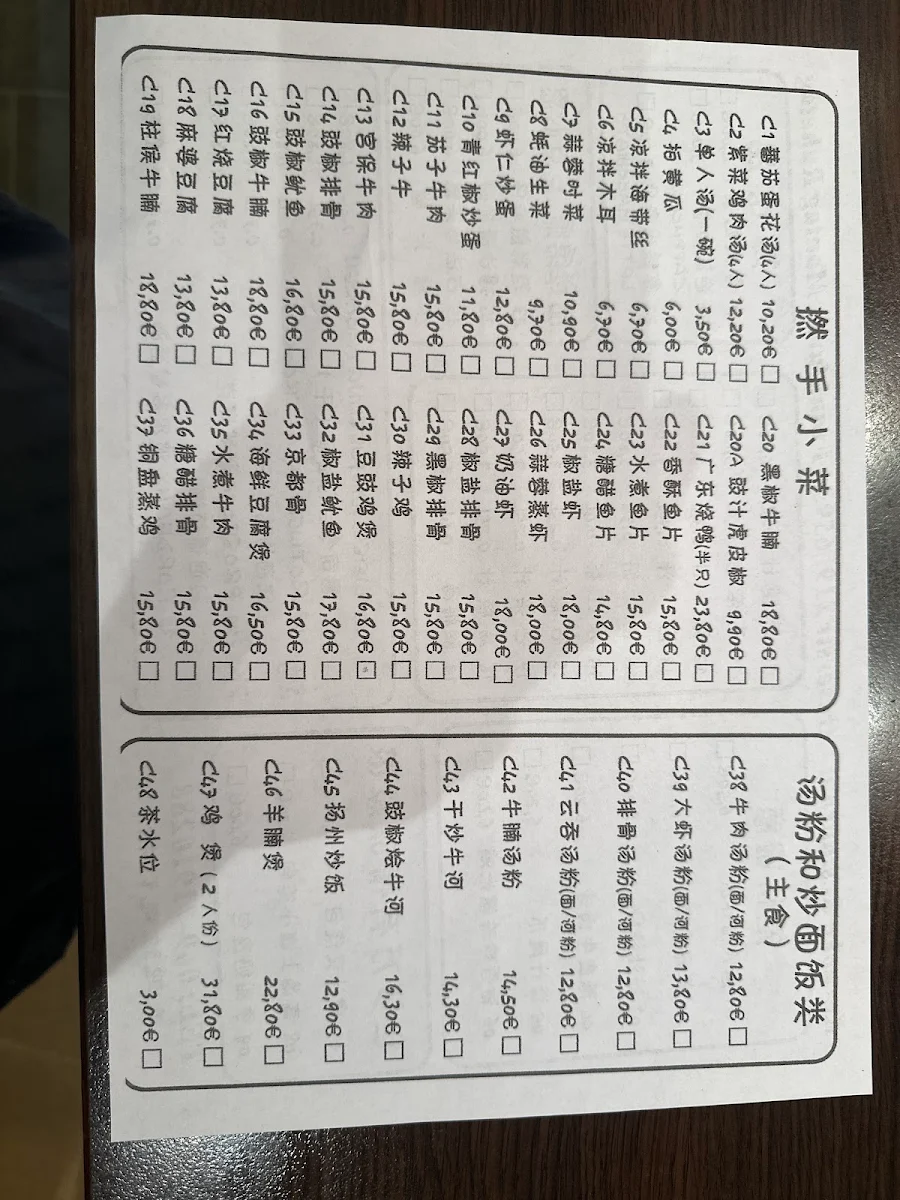 撚手小菜
C1 蕃茄蛋花汤(4人) 10,20€ □
C2 紫菜鸡肉汤(4人) 12,20€ □
C3 单人汤(一碗) 3,50€ □
C4 拍黄瓜 6,00€ □
C5 凉拌海带丝 6,70€ □
C6 凉拌木耳 6,70€ □
C7 蒜蓉时菜 10,90€ □
C8 蚝油生菜 9,70€ □
C9 虾仁炒蛋 12,80€ □
C10 青红椒炒蛋 11,80€ □
C11 茄子牛肉 15,80€ □
C12 辣子牛 15,80€ □
C13 宫保牛肉 15,80€ □
C14 豉椒排骨 15,80€ □
C15 豉椒鱿鱼 16,80€ □
C16 豉椒牛腩 18,80€ □
C17 红烧豆腐 13,80€ □
C18 麻婆豆腐 13,80€ □
C19 柱候牛腩 18,80€ □
C20 黑椒牛腩 18,80€ □
C20A 豉汁虎皮椒 9,90€ □
C21 广东烧鸭(半只) 23,80€ □
C22 香酥鱼片 15,80€ □
C23 水煮鱼片 15,80€ □
C24 糖醋鱼片 14,80€ □
C25 椒盐虾 18,00€ □
C26 蒜蓉蒸虾 18,00€ □
C27 奶油虾 18,00€ □
C28 椒盐排骨 15,80€ □
C29 黑椒排骨 15,80€ □
C30 辣子鸡 15,80€ □
C31 豆豉鸡煲 16,80€ □
C32 椒盐鱿鱼 17,80€ □
C33 京都骨 15,80€ □
C34 海鲜豆腐煲 16,50€ □
C35 水煮牛肉 15,80€ □
C36 糖醋排骨 15,80€ □
C37 铜盘蒸鸡 15,80€ □
汤粉和炒面饭类
(主食)
C38 牛肉汤粉(面/河粉) 12,80€ □
C39 大虾汤粉(面/河粉) 13,80€ □
C40 排骨汤粉(面/河粉) 12,80€ □
C41 云吞汤粉(面/河粉) 12,80€ □
C42 牛腩汤粉 14,50€ □
C43 干炒牛河 14,30€ □
C44 豉椒烩牛河 16,30€ □
C45 扬州炒饭 12,90€ □
C46 羊腩煲 22,80€ □
C47 鸡 煲(2人份) 31,80€ □
C48 茶水位 3,00€ □